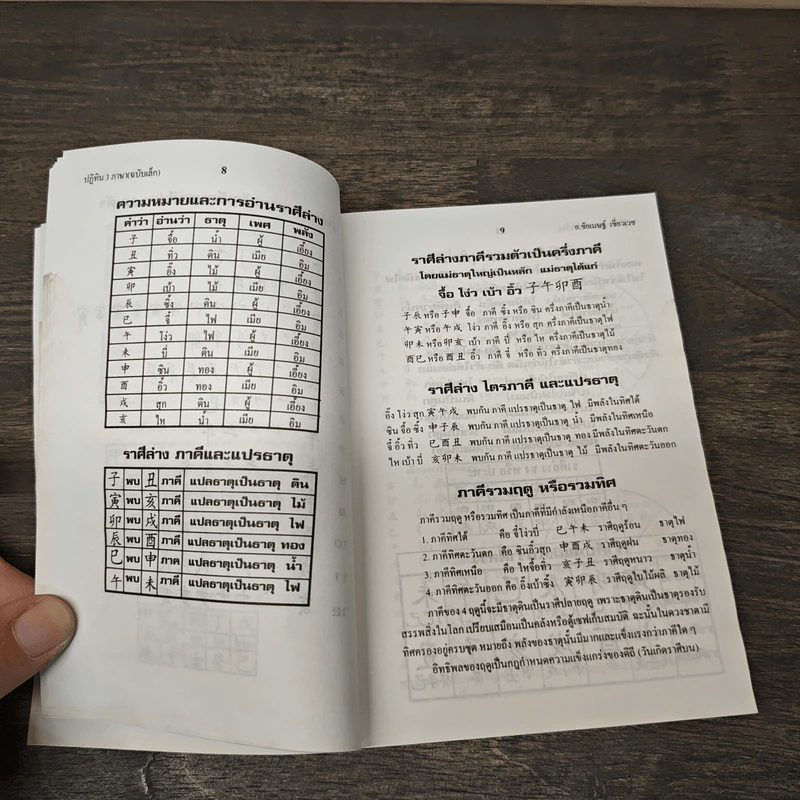 ปฏิทิน 3 ภาษา(ฉบับเล็ก) 8
ความหมายและการอ่านราศีล่าง
คำว่า อ่านว่า ธาตุ เพศ พลัง
子 จื้อ น้ำ ผู้ เอี้ยง
丑 ทิ่ว ดิน เมีย อิม
寅 อิ๊ง ไม้ ผู้ เอี้ยง
卯 เบ้า ไม้ เมีย อิม
辰 ซิ้ง ดิน ผู้ เอี้ยง
巳 จี๋ ไฟ เมีย อิม
午 โง่ว ไฟ ผู้ เอี้ยง
未 บี่ ดิน เมีย อิม
申 ซิน ทอง ผู้ เอี้ยง
酉 อิ้ว ทอง เมีย อิม
戌 สุก ดิน ผู้ เอี้ยง
亥 ไห น้ำ เมีย อิม
ราศีล่าง ภาคีและแปรธาตุ
子 พบ 丑 ภาคี แปลธาตุเป็นธาตุ ดิน
寅 พบ 亥 ภาคี แปลธาตุเป็นธาตุ ไม้
卯 พบ 戌 ภาคี แปลธาตุเป็นธาตุ ไฟ
辰 พบ 酉 ภาคี แปลธาตุเป็นธาตุ ทอง
巳 พบ 申 ภาคี แปลธาตุเป็นธาตุ น้ำ
午 พบ 未 ภาคี แปลธาตุเป็นธาตุ ไฟ
9 อ.ชัยเมษฐ์ เชี่ยวเวช
ราศีล่างภาคีรวมตัวเป็นครึ่งภาคี
โดยแม่ธาตุใหญ่เป็นหลัก แม่ธาตุได้แก่
จื้อ โง่ว เบ้า อิ้ว 子午卯酉
子辰 หรือ 子申 จื้อ ภาคี ซิ้ง หรือ ซิน ครึ่งภาคีเป็นธาตุน้ำ
午寅 หรือ 午戌 โง่ว ภาคี อิ๊ง หรือ สุก ครึ่งภาคีเป็นธาตุไฟ
卯未 หรือ 卯亥 เบ้า ภาคี บี่ หรือ ไห ครึ่งภาคีเป็นธาตุไม้
酉巳 หรือ 酉丑 อิ้ว ภาคี จี๋ หรือ ทิ่ว ครึ่งภาคีเป็นธาตุทอง
ราศีล่าง ไตรภาคี และแปรธาตุ
อิ๊ง โง่ว สุก 寅午戌 พบกัน ภาคี แปรธาตุเป็นธาตุ ไฟ มีพลังในทิศใต้
ซิน จื้อ ซิ้ง 申子辰 พบกัน ภาคี แปรธาตุเป็นธาตุ น้ำ มีพลังในทิศเหนือ
จี๋ อิ้ว ทิ่ว 巳酉丑 พบกัน ภาคี แปรธาตุเป็นธาตุ ทอง มีพลังในทิศตะวันตก
ไห เบ้า บี่ 亥卯未 พบกัน ภาคี แปรธาตุเป็นธาตุ ไม้ มีพลังในทิศตะวันออก
ภาคีรวมฤดู หรือรวมทิศ
ภาคีรวมฤดู หรือรวมทิศ เป็นภาคีที่มีกำลังเหนือภาคีอื่น ๆ
1. ภาคีทิศใต้ คือ จี๋โง่วบี่ 巳午未 ราศีฤดูร้อน ธาตุไฟ
2. ภาคีทิศตะวันตก คือ ซินอิ้วสุก 申酉戌 ราศีฤดูฝน ธาตุทอง
3. ภาคีทิศเหนือ คือ ไหจื้อทิ่ว 亥子丑 ราศีฤดูหนาว ธาตุน้ำ
4. ภาคีทิศตะวันออก คือ อิ๊งเบ้าซิ้ง 寅卯辰 ราศีฤดูใบไม้ผลิ ธาตุไม้
ภาคีของ 4 ฤดูนี้จะมีธาตุดินเป็นราศีปลายฤดู เพราะธาตุดินเป็นธาตุรองรับ
สรรพสิ่งในโลก เปรียบเสมือนเป็นคลังหรือตู้เซฟเก็บสมบัติ ฉะนั้นในดวงชาตามี
ทิศครองอยู่ครบชุด หมายถึง พลังของธาตุนั้นมีมากและแข็งแรงกว่าภาคีใด ๆ
อิทธิพลของฤดูเป็นกฎกำหนดความแข็งแกร่งของดิถี (วันเกิดราศีบน)